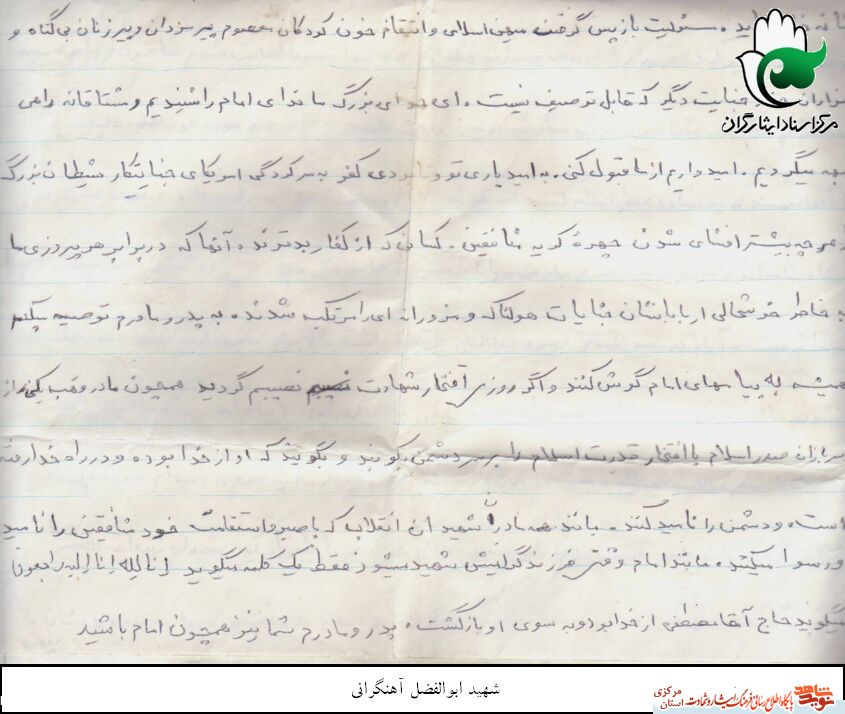 مسئولیت بازپس گرفتن میهن اسلامی و انتقام خون کودکان معصوم پیرمردان و پیرزنان بی گناه و
جنایت دیگر که قابل توصیف نیست. ای خدای بزرگ ما ندای امام را شنیدیم و مشتاقانه راهی
جبهه میگردیم. امیدواریم از ما قبول کنی. به امید یاری تو و نابودی کفر به سرکردگی امریکای جنایتکار شیطان بزرگ
هرچه بیشتر افشای شدن چهره کریه منافقین. کسانی که از کفار بدترند. آنها که در برابر هر پیروزی ما
به خاطر خوشحالی اربابانشان جنایات هولناک و مزورانه ای را مرتکب شدند. به پدر و مادرم توصیه میکنم
همیشه به پیامهای امام گوش کنند و اگر روزی افتخار شهادت نصیبم گردید همچون مادر وهب یکی از
سربازان صدر اسلام با افتخار قدرت اسلام را بر سر دشمن بکوبند و بگویند که او از خدا بوده و در راه خدا رفته
است. و دشمن را ناامید کنند. مانند همه مادران شهیدان انقلاب که با صبر و استقامت خود منافقین را ناامید
و رسوا میکنند. مانند امام وقتی فرزند گرامیش شهید میشود فقط یک کلمه میگوید انا لله انا الیه راجعون
میگوید حاج آقا مصطفی از خدا بود و به سوی او بازگشت. پدر و مادرم شما نیز همچون امام باشید
مرکز اسناد ایثارگران
شهید ابوالفضل آهنگرانی
نوید شاهد
پایگاه اطلاع رسانی فرهنگ ایثار و شهادت استان مرکزی